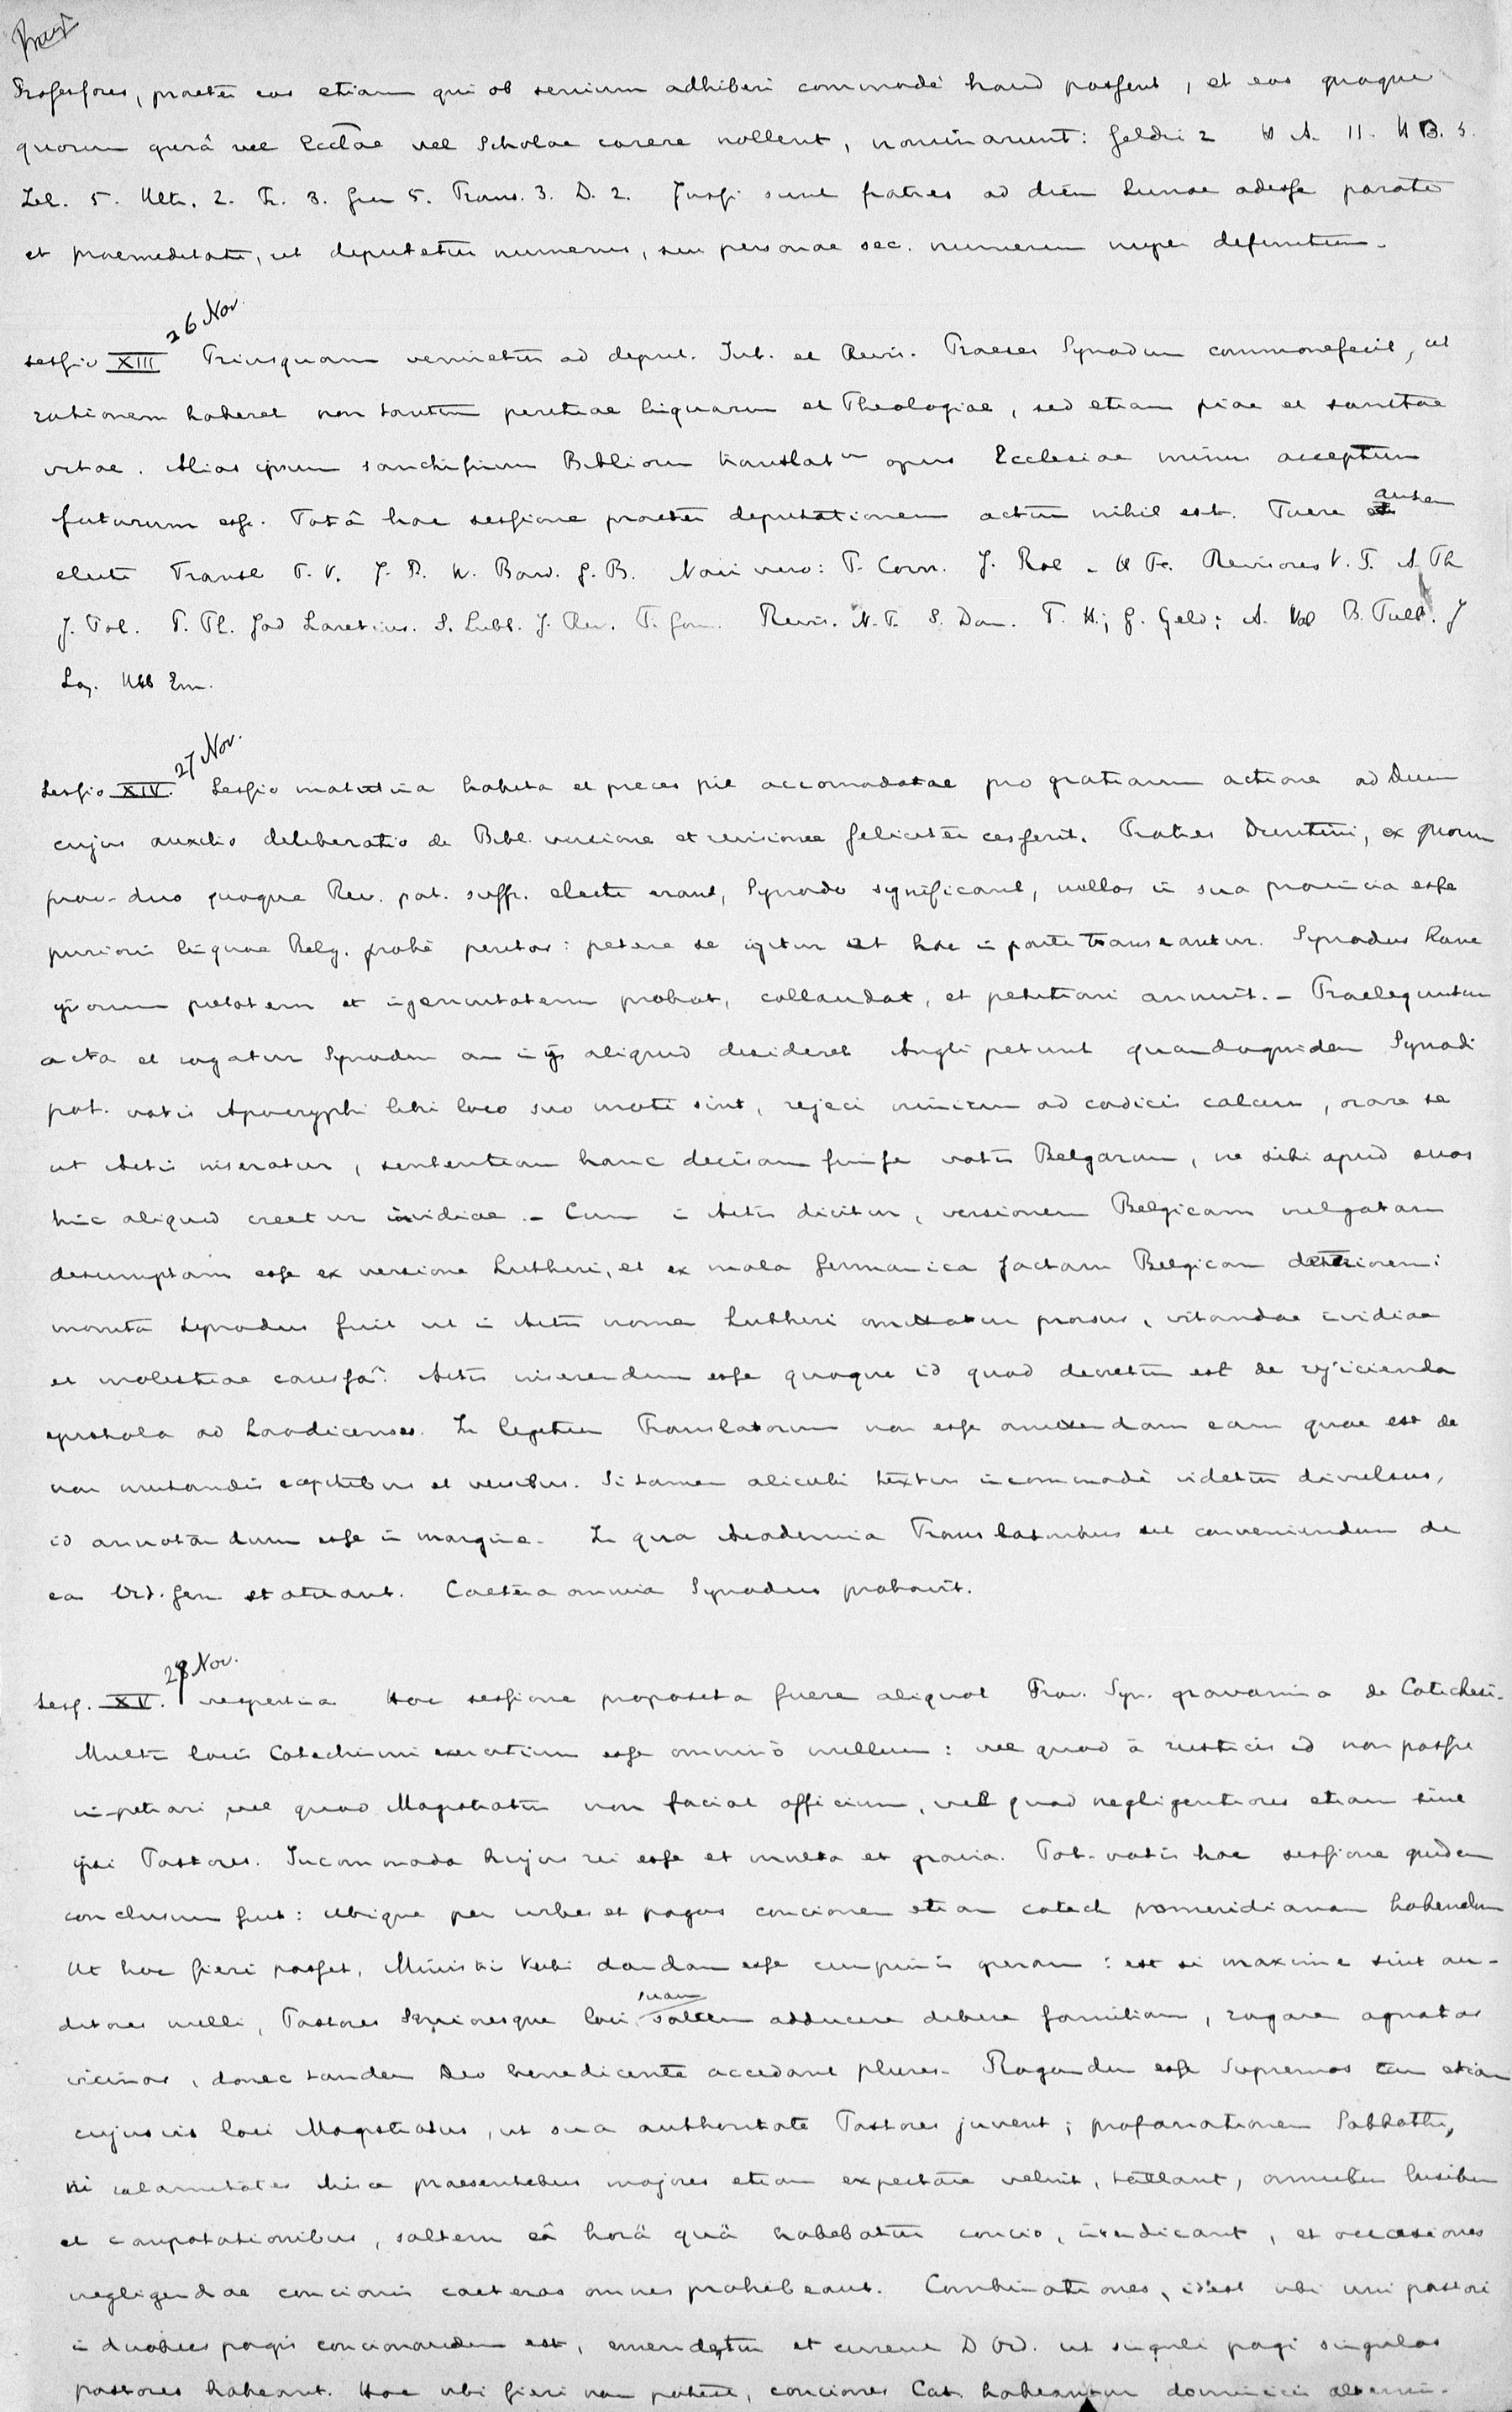 Professores, praeter eos etiam qui ob senium adhiberi commodè haud possent, et eos quoque
quorum operâ vel Ecclae vel Scholae carere nollent, nominarunt: Geldri 2 H A. 11. H B. 5.
Zel. 5. Ultr. 2. Fr. 3. Gro 5. Trans. 3. D. 2. Jussi sunt fratres ad diem Lunae adesse parati
et praemeditati, ut deputetur numerus, seu personae sec. numerum nuper definitum.
26 Nov.
Sessio XIII Priusquam veniretur ad deput. Int. et Revis. Praeses Synodum commonefecit, ut
rationem haberet non tantum peritiae linguarum et Theologiae, sed etiam piae et sanctae
vitae. Alias ipsum sanctissimum Bibliorum translatm opus Ecclesiae minus acceptum
futurum esse. Totâ hac sessione praeter deputationem actum nihil est. Fuere autem
electi Transl T. V. J. B. W. Baud. G. B. Novi vero: P. Corn. J. Rol - H Fr. Revisores V. T. A. Th
J. Pol. P. Pl. Jod Laretius. S. Lubb. J. Rev. F. Gom. Revis. N. T. S. Dam. F. H.; G. Geld; A. Wal B. Full. J
La. Ubb Em.
27 Nov.
Sessio XIV. Sessio matutina habita et preces pie accomodatae pro gratiarum actione ad Deum
cujus auxilio deliberatio de Bibl. versione et revisione feliciter cesserit. Fratres Drentini, ex quorum
prov. duo quoque Rev. pat. suffr. electi erant, Synodo significant, nullos in sua provincia esse
purioris linguae Belg. probè peritos: petere se igitur ut hac in parte transeantur. Synodus hanc
ipsorum pietatem et ingenuitatem probat, collaudat, et petitioni annuit. - Praeleguntur
acta et rogatur Synodum an in ijs aliquid desideret Angli petunt quandoquidem Synodi
pat. votis Apocryphi libri loco suo moti sint, rejeci nimirum ad codicis calcem, orare se
ut Actis inseratur, sententiam hanc decisam fuisse votis Belgarum, ne sibi apud suos
hinc aliquid creetur invidiae. - Cum in Actis dicitur, versionem Belgicam vulgatam
desumptam esse ex versione Lutheri, et ex mala Germanica factam Belgicam deteriorem:
monita Synodus fuit ut in Actis nomen Lutheri omittatur prorsus, vitandae invidiae
et molestiae caussâ. Actis inserendum esse quoque id quod decretum est de rejicienda
epistola ad Laodicenses. In legibus Translatorum non esse omittendam eam quae est de
non mutandis capitibus et versibus. Si tamen alicubi textus incommodè videtur divulsus,
id annotandum esse in margine. In qua Academia Translatoribus sit conveniendum de
ea Ord. Gen statuant. Caetera omnia Synodus probavit.
28 Nov.
Sess. XV. vespertina Hac sessione proposita fuere aliquot Prov. Syn. gravamina de Catechesi.
Multis locis Catechismi exercitium esse omninò nullum: vel quod à rusticis id non posse
impetrari, vel quod Magistratus non faciat officium, vel quod negligentiores etiam sint
ipsi Pastores. Incommoda hujus rei esse et multa et gravia. Pat. votis hac sessione quidem
conclusum fuit: ubique per urbes et pagos concionem etiam catech pomeridianam habendam
Ut hoc fieri posset, Ministri Verbi dandam esse cumprimis operam: et si maxime sint au-
ditores nulli, Pastores Senioresque loci suam saltem adducere debere familiam, rogare agnatos
vicinos, donec tandem Deo benedicente accedant plures. Rogandum esse supremos tum etiam
cujusvis loci Magistratus, ut sua authoritate Pastores juvent; profanationem Sabbathi,
ni calamitates hisce praesentibus majores etiam expectare velint, tollant, omnibus lusibus
et compotationibus, saltem eâ horâ quâ habebatur concio, interdicant, et occasiones
negligendae concionis caeteras omnes prohibeant. Combinationes, id est ubi uni pastori
in duobus pagis concionandum est, emendetur et curent D Ord. ut singuli pagi singulos
pastores habeant. Hoc ubi fieri non poterit, conciones Cat. habeantur dominicis alternis.